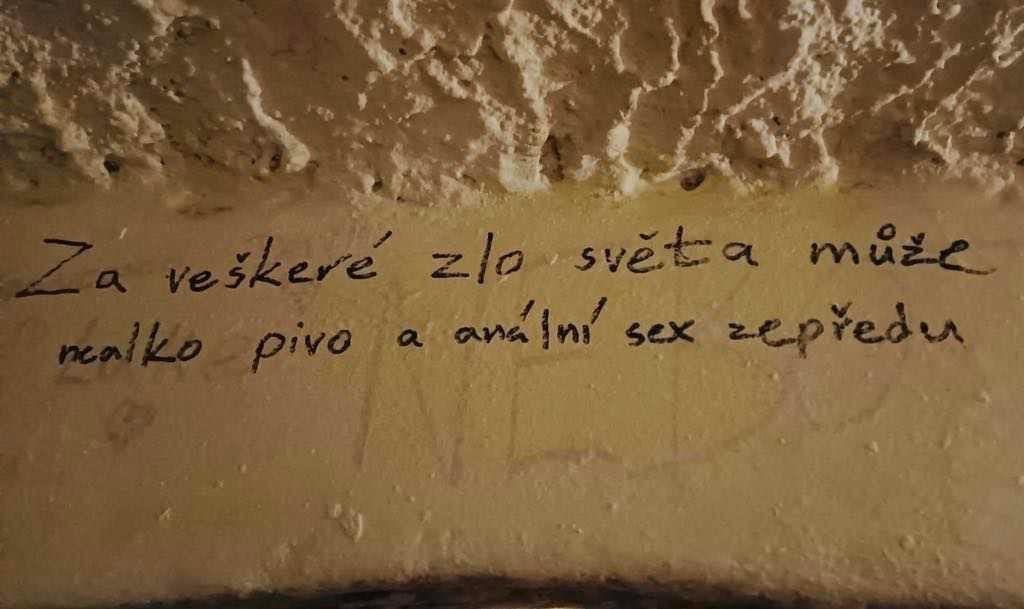 Za veškeré zlo světa může
nealko pivo a anální sex zepředu